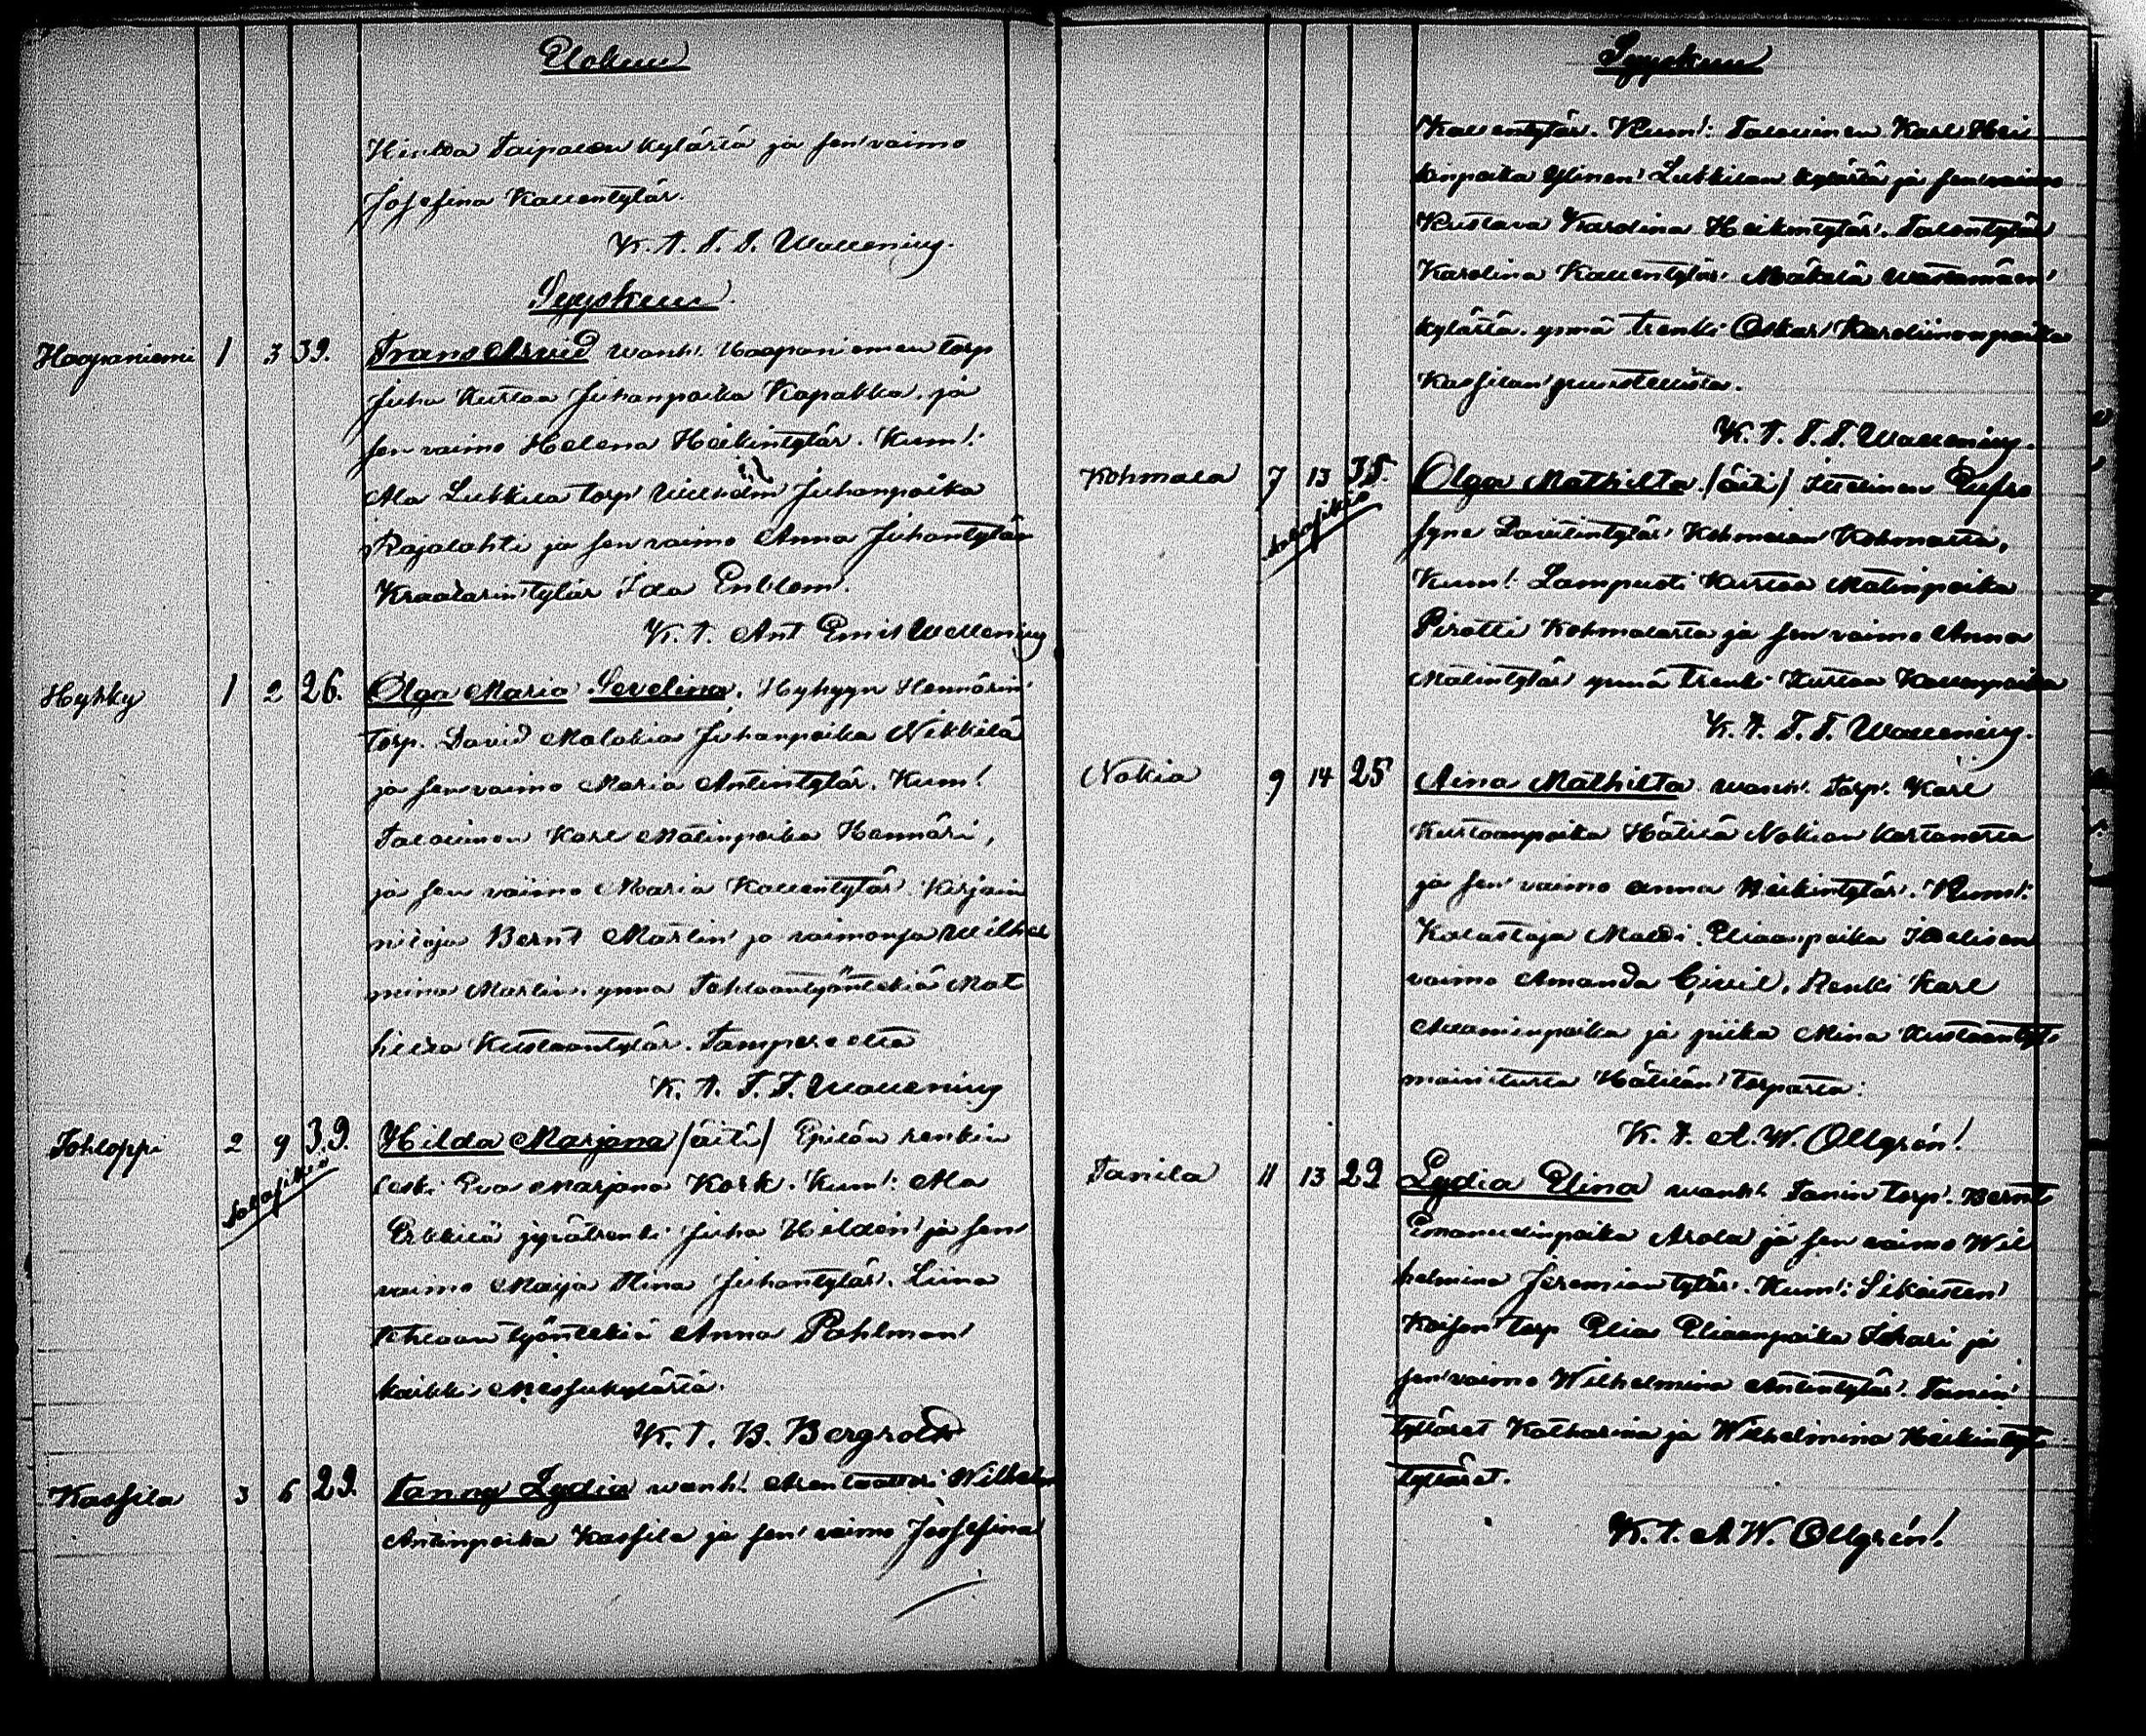 Elokuu
Hinttaa Taipaleen kylästä ja sen vaimo
Josefina Kallentytär.
K. T. F. F. Wallenius.
Syyskuu.
Haapaniemi 1 3 39. Frans Arvid wanh. Haapaniemen torp
Juha Kustaa Juhanpoika Kapakka. ja
sen vaimo Helena Heikintytär. Kum:
Ala Lukkila torp Juhanpoika
Rajalahti ja sen vaimo Anna Juhantytär
Kraatarintytär Ida Enblom.
K. T. Ant Emil Wallenius
Hyhky 1 2 26. Olga Maria Sevelina. Hyhyyn Hennärin
torp. David Malakia Juhanpoika Nikkilä
ja sen vaimo Maria Antintytär. Kum:
Talollinen Karl Matinpoika Hennäri,
ja sen vaiimo Maria Kallentytär. Kirjain
nitoja Bernt Martin ja vaimonsa Wilhel
mina Martin. ynnä Tehtaantyöntekiä Mat
hilda Kustaantytär. Tampereelta
K. T. F. F. Wallenius
Tohloppi 2 9 39. Hilda Marjana /äiti/ Epilän renkin
leski Eva Marjana Kork. Kum: Ala
Salasikiö
Erkkilä jyvätrenki Juha Hilden ja sen
vaimo Maija Stina Juhantytär. Liina
tehtaan työntekiä Anna Pohlman
kaikki Messukylästä.
K. T. B. Bergroth
Kassila 3 6 29. Fanny Lydia wanh. Arentaattori Wilhelm
Antinpoika Kassila ja sen vaimo Josefina
Syyskuu
Kallentytär. Kum: Talollinen Karl Hei
kinpoika Ylinen Lukkilan kylästä ja sen vaimo
Kustava Karolina Heikintytär. Talontytär
Karolina Kallentytär Mäkelä
kylästä. ynnä trenki Oskar Karoliinanpoika
Kassilan puustellista.
K. T. F. F. Wallenius.
Kohmala 7 13 35. Olga Mathilta /äiti/ Itsellinen Eufro
Salasikiö
syne Davidintytär Kohmalan Kohmalta,
Kum: Lampuoti Kustaa Matinpoika
Pirotti Kohmalasta ja sen vaimo Anna
Matintytär ynnä trenki Kustaa Kallenpoika
K. T. F. F. Wallenius.
Nokia 9 14 25 Aina Mathilta wanh. Torp. Karl
Kustaanpoika Hätilä Nokian Kartanosta
ja sen vaimo Anna Heikintytär. Kum:
Kalastaja Matti Eliaanpoika Itselisen
vaimo Amanda Civil, Renki Karl
Aadaminpoika ja piika Mina Kustaantyt.
mainitusta Hätilän torpasta.
K. T. A. W. Ollgrén!
Tanila 11 13 29 Lydia Elina wanh. Tanin torp. Bernt
Emanuelinpoika Arola ja sen vaimo Wil
helmina Jeremiantytär. Kum: Sikaisten
Kaisan torp Elia Eliaanpoika Ikari ja
sen vaimo Wilhelmina Antintytär. Tanin
tyttäret Katharina ja Wilhelmina Heikintyt
tyttäret.
K. T. A W. Ollgrén!